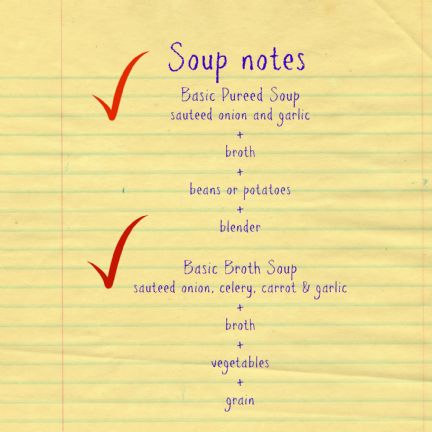 Soup notes
Basic Pureed Soup
sauteed onion and garlic
+
broth
+
beans or potatoes
+
blender
Basic Broth Soup
sauteed onion, celery, carrot & garlic
+
broth
+
vegetables
+
grain